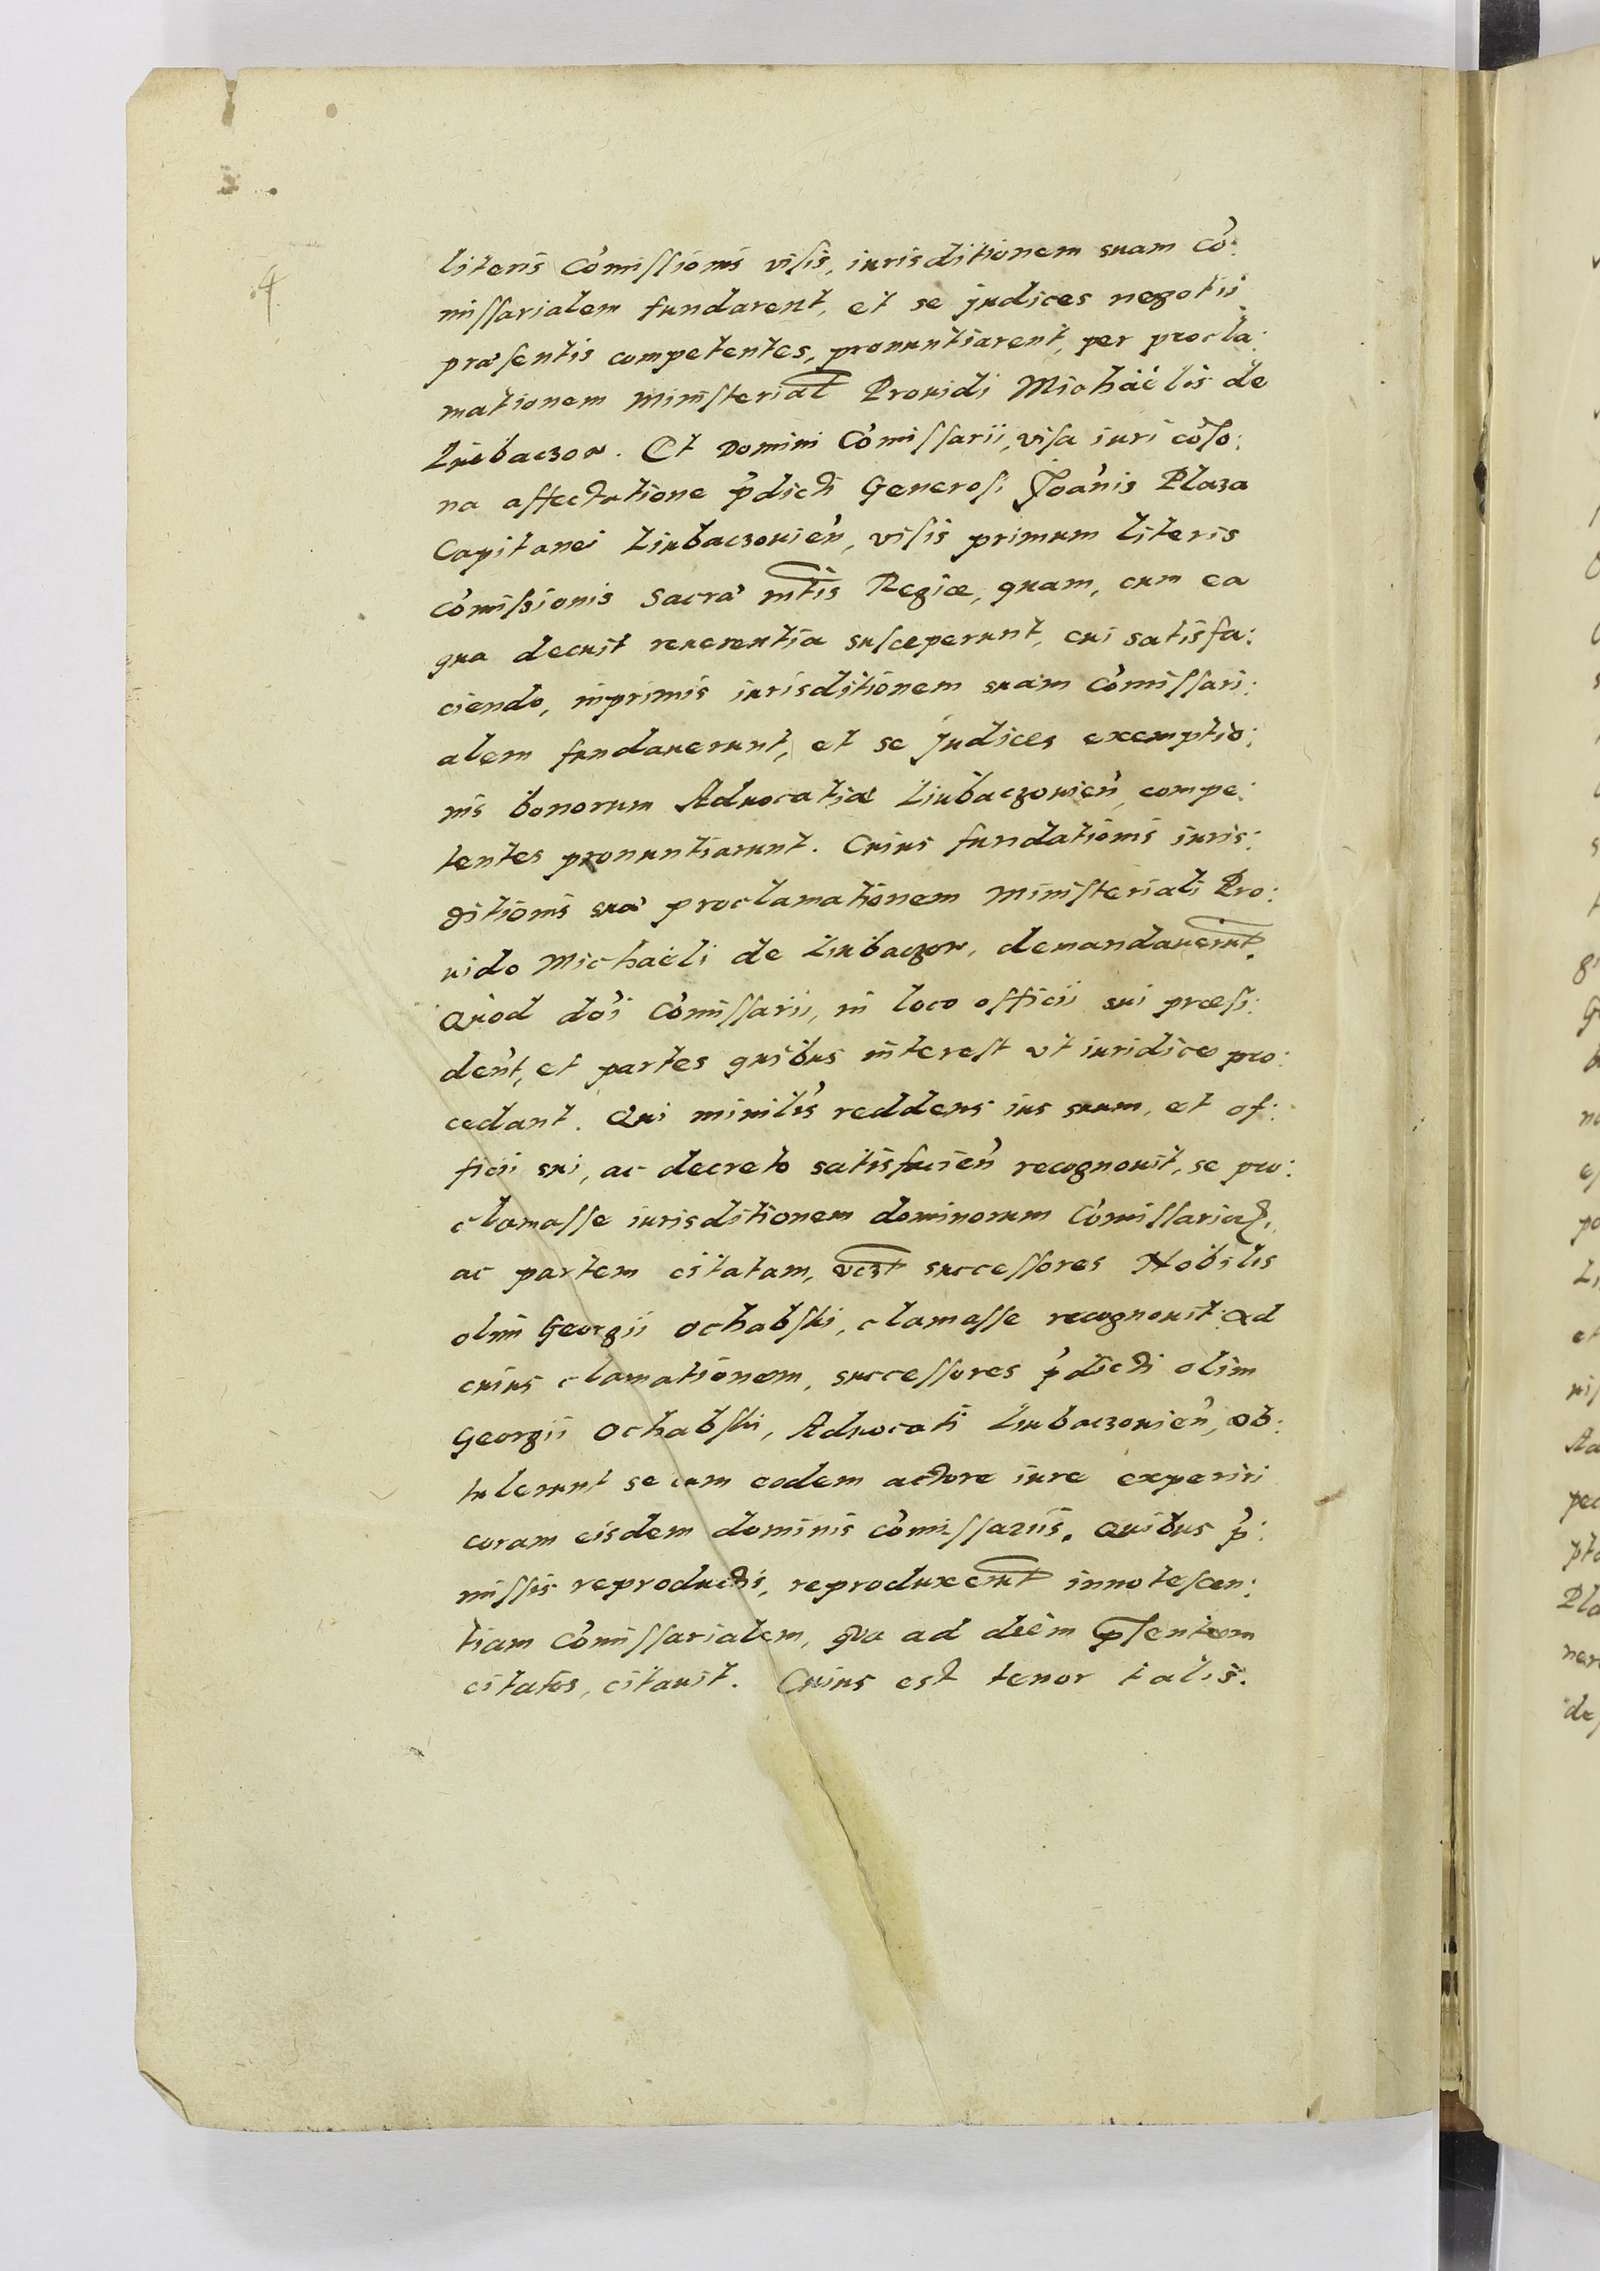 4
literis Cõmissionis visis, iurisditionem suam Cõ:
missarialem fundarent, et se judices negotii
præsentis competentes, pronuntiarent, per procla:
mationem Ministerial Prouidi Michaëlis de
Liubaczow. Et Domini Cõmissarii, visa iuri cõso:
na affectatione p̃dicti Generosi Joãnis Plaza
Capitanei Liubaczouień, visis primum literis
Cõmissionis Sacræ mtis Regiæ, quam, cum ea
qua decuit reuerentia susceperunt, cui satisfa:
ciendo, inprimis iurisditionem suam Cõmissari:
alem fundauerunt, et se judices exemptio:
nis bonorum Aduocatiæ Liubaczouień compe:
tentes pronuntiarunt. Cuius fundationis iuris:
ditionis suæ proclamationem Ministeriali Pro:
uido Michaëli de Liubaczow, demandauerunt.
Quod dõi Cõmissarii, in loco officii sui præsi:
dent, et partes quibus interest vt iuridice pro:
cedant. Qui minilis reddens ius suum, et of:
ficii sui, ac decreto satisfacień recognouit, se pro:
clamasse iurisditionem dominorum Cõmissarioꝝ,
ac partem citatam, vczt successores Nobilis
olim Georgii Ochabski, clamasse recognouit: Ad
cuius clamationem, successores p̃dicti olim
Georgii Ochabski, Aduocati Liubaczouień, ob:
tulerunt se cum eodem actore iure experiri
coram eisdem dominis Cõmissariis. Quibus p̃:
missis reproductis, reproduxerunt innotescen:
tiam Cõmissarialem, qua ad diem p̃sentem
citatos, citauit. Cuius est tenor talis.